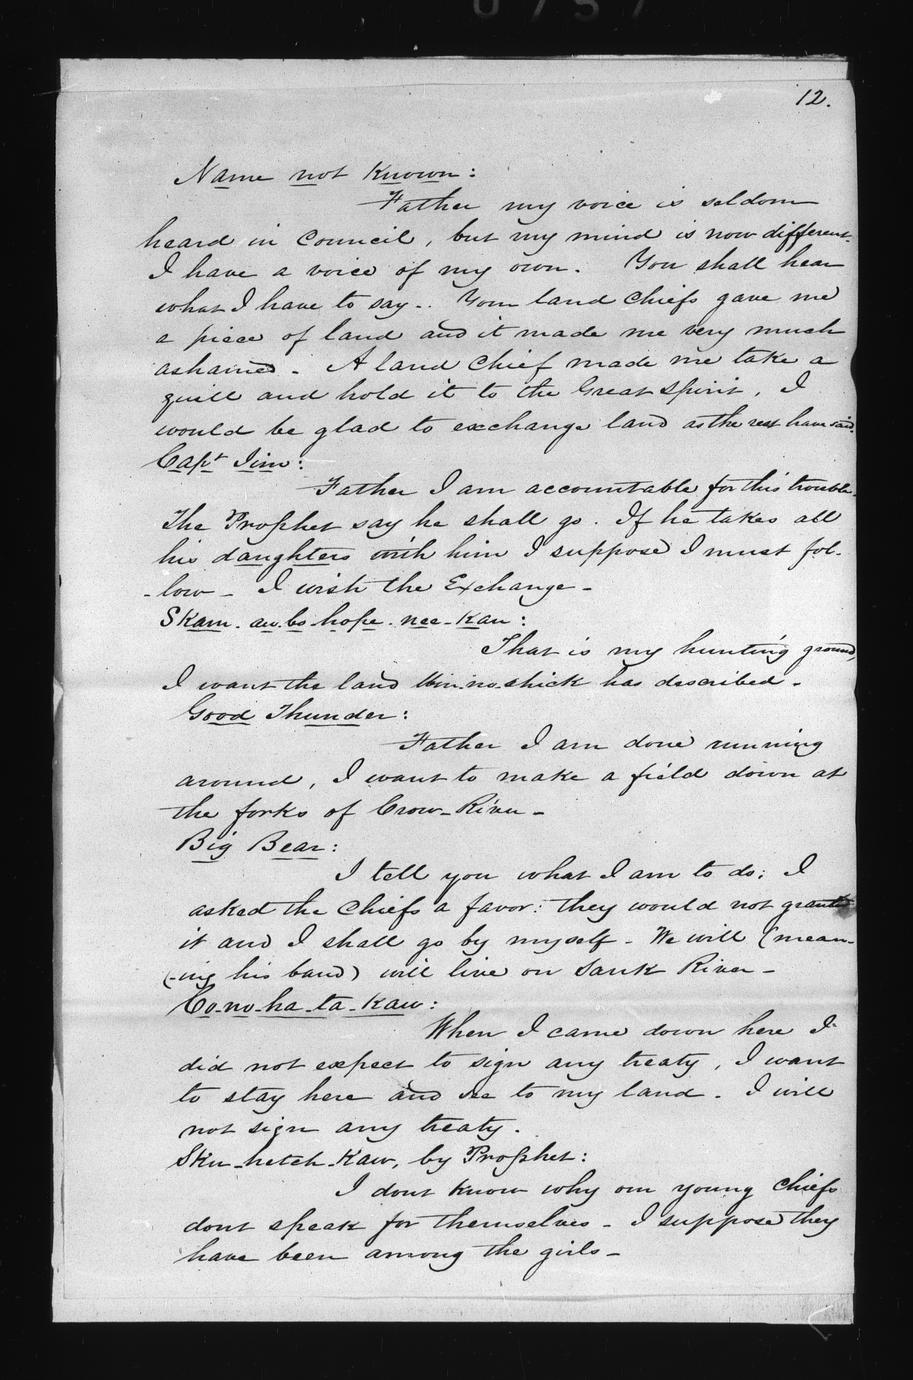 12.
Name not Known:
Father my voice is seldom
heard in Council, but my mind is now different.
I have a voice of my own. You shall hear
what I have to say.. Your land Chiefs gave me
a piece of land and it made me very much
ashamed. A land Chief made me take a
quill and hold it to the Great Spirit, I
would be glad to exchange land as the rest have said.
Capt Jim:
Father I am accountable for this trouble.
The Prophet say he shall go. If he takes all
his daughters with him I suppose I must fol-
-low - I wish the Exchange -
Skam-au-bo-hope-nee-Kau:
That is my huntin'g ground,
I want the land Win-no-shick has described -
Good Thunder:
Father I am done running
around, I want to make a field down at
the forks of Crow-River -
Big Bear:
I tell you what I am to do; I
asked the Chiefs a favor: they would not grant
it and I shall go by myself - We will (mean-
(-ing his band) will live on Sauk River -
Co-no-ha-ta-Kaw:
When I came down here I
did not expect to sign any treaty, I want
to stay here and see to my land. I will
not sign any treaty.
Sku-hetch-Kaw, by Prophet:
I dont know why our young Chiefs
dont speak for themselves - I suppose they
have been among the girls -